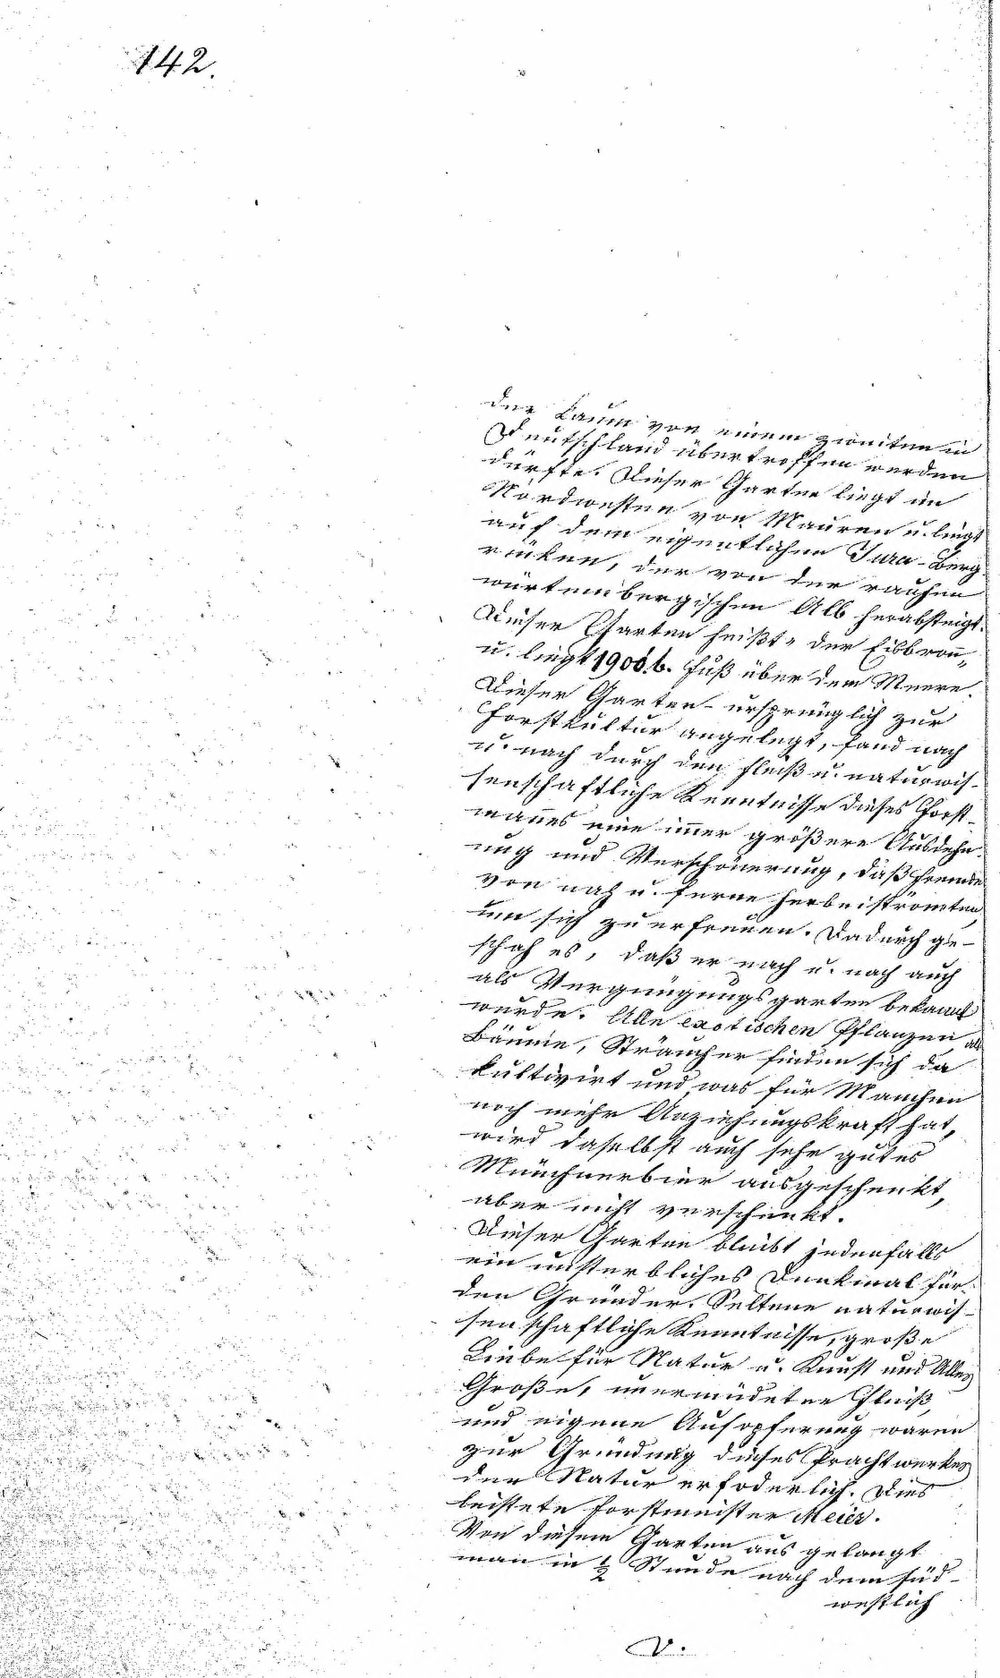 142.
der kaum von einem zweiten in
Deutschland übertroffen werden
dürfte. Dieser Garten liegt im
Nordwesten von Mauren u. liegt
auf dem eigentlichen Jura-Berg-
rücken, der von der rauhen
würtembergischen Alb herabsteigt.
Dieser Garten heißt: der Eisbron̄,
u. liegt 1900 Fuß über dem Meere.
Dieser Garten ursprünglich zur
Forstkultur angelegt, fand nach
u. nach durch den Fleiß u. naturwis-
senschaftliche Kenntnisse dieses Forst-
man̄es eine im̄er größere Ausdehn-
ung und Verschönerung, daß Fremde
von nah u. ferne herbeiströmten,
um sich zu erfreuen. Dadurch ge-
schah es, daß er nach u. nach auch
als Vergnügungsgarten bekannt
wurde. Alle exotischen Pflanzen als
Bäume, Sträucher finden sich da
kultivirt und was für Manchen
noch mehr Anziehungskraft hat,
wird daselbst auch sehr gutes
Münchnerbier ausgeschenkt,
aber nicht verschenkt.
Dieser Garten bleibt jedenfalls
ein unsterbliches Denkmal für
den Gründer. Seltene naturwis-
senschaftliche Kenntnisse, große
Liebe für Natur u. Kunst und Alles
Große, unermüdeter Fleiß,
und eigene Aufopferung waren
zur Gründung dieses Prachtwerkes
der Natur erfoderlich. Dies
leistete Forstmeister Meier.
Von diesem Garten aus gelangt
man in ½ Stunde nach dem süd-
westlich
V.